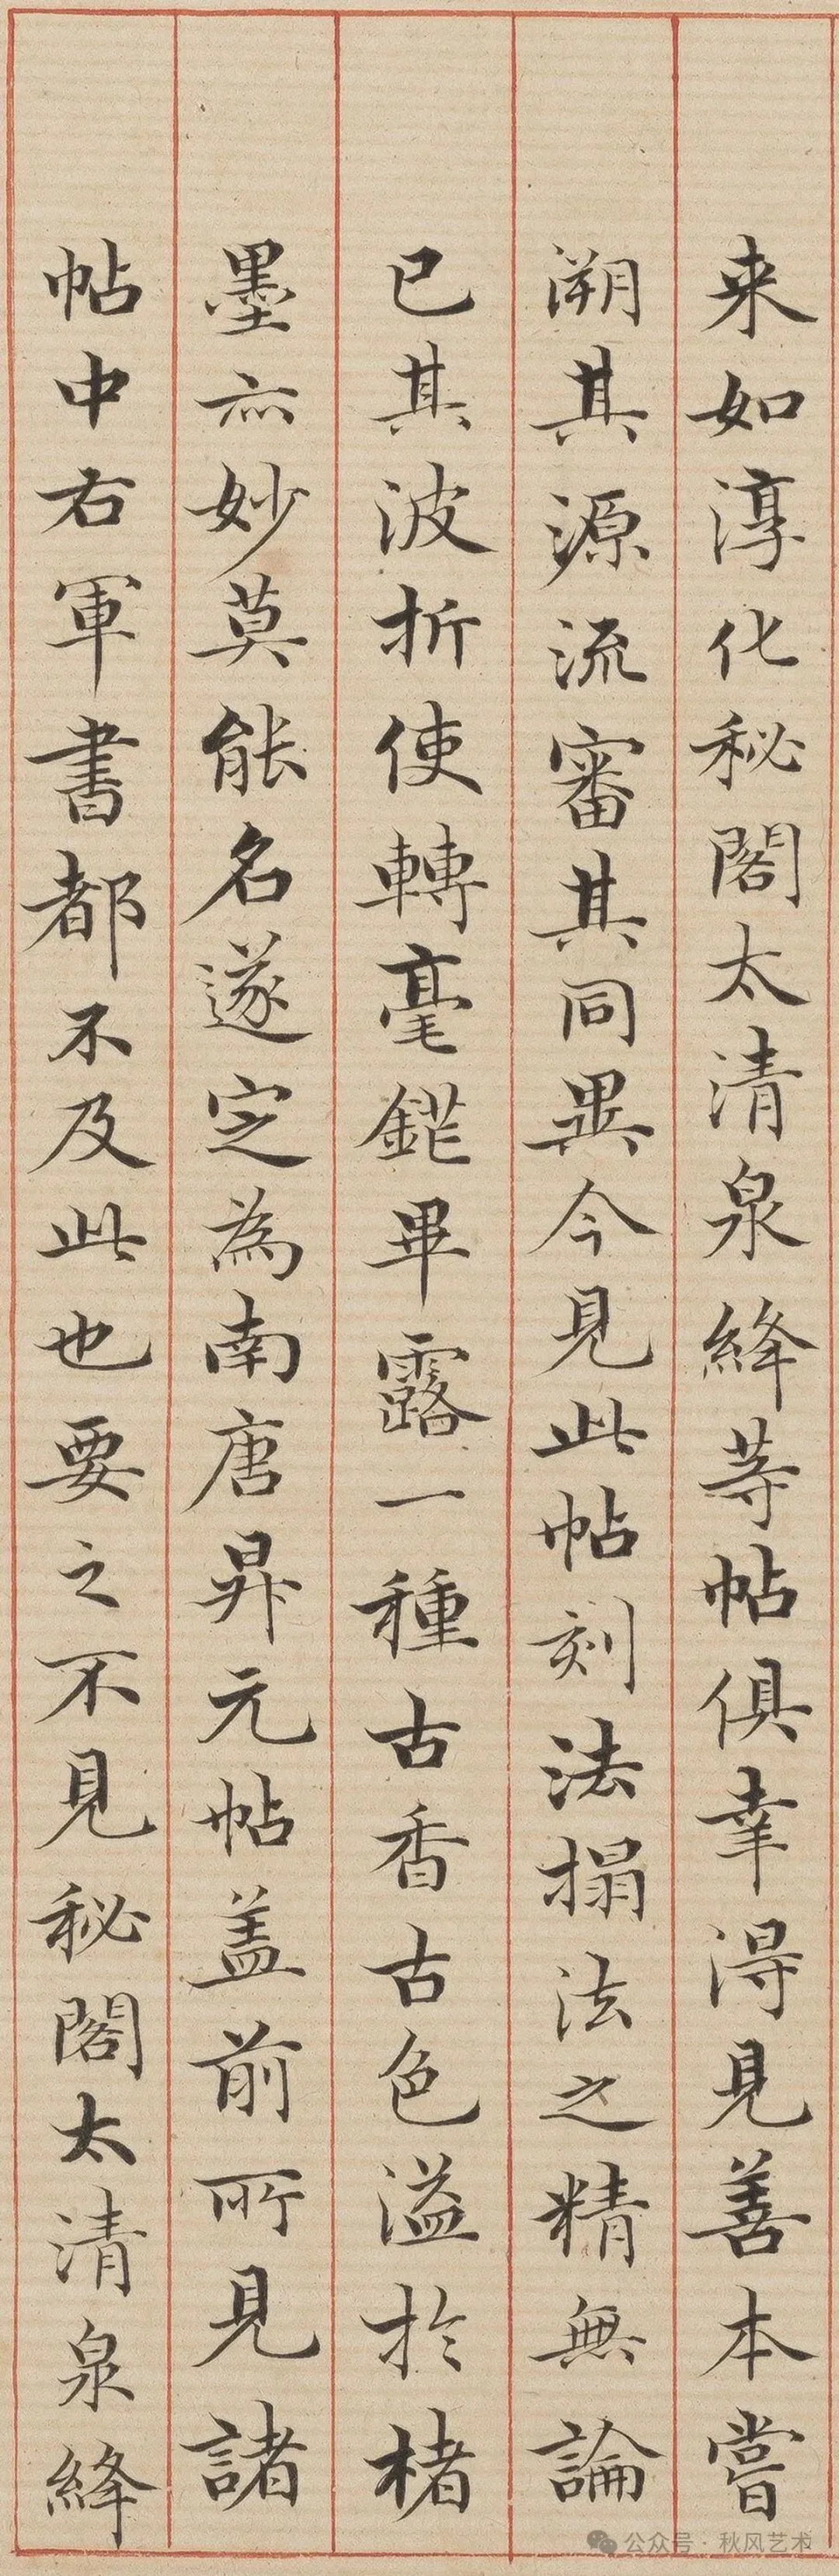 来如淳化秘閣太清泉絳等帖俱幸得見善本嘗
溯其源流審其同異今見此帖刻法搨法之精無論
已其波折使轉毫鋩畢露一種古香古色溢於楮
墨亦妙莫能名遂定為南唐昇元帖盖前所見諸
帖中右軍書都不及此也要之不見秘閣太清泉絳
公众号·秋风艺术